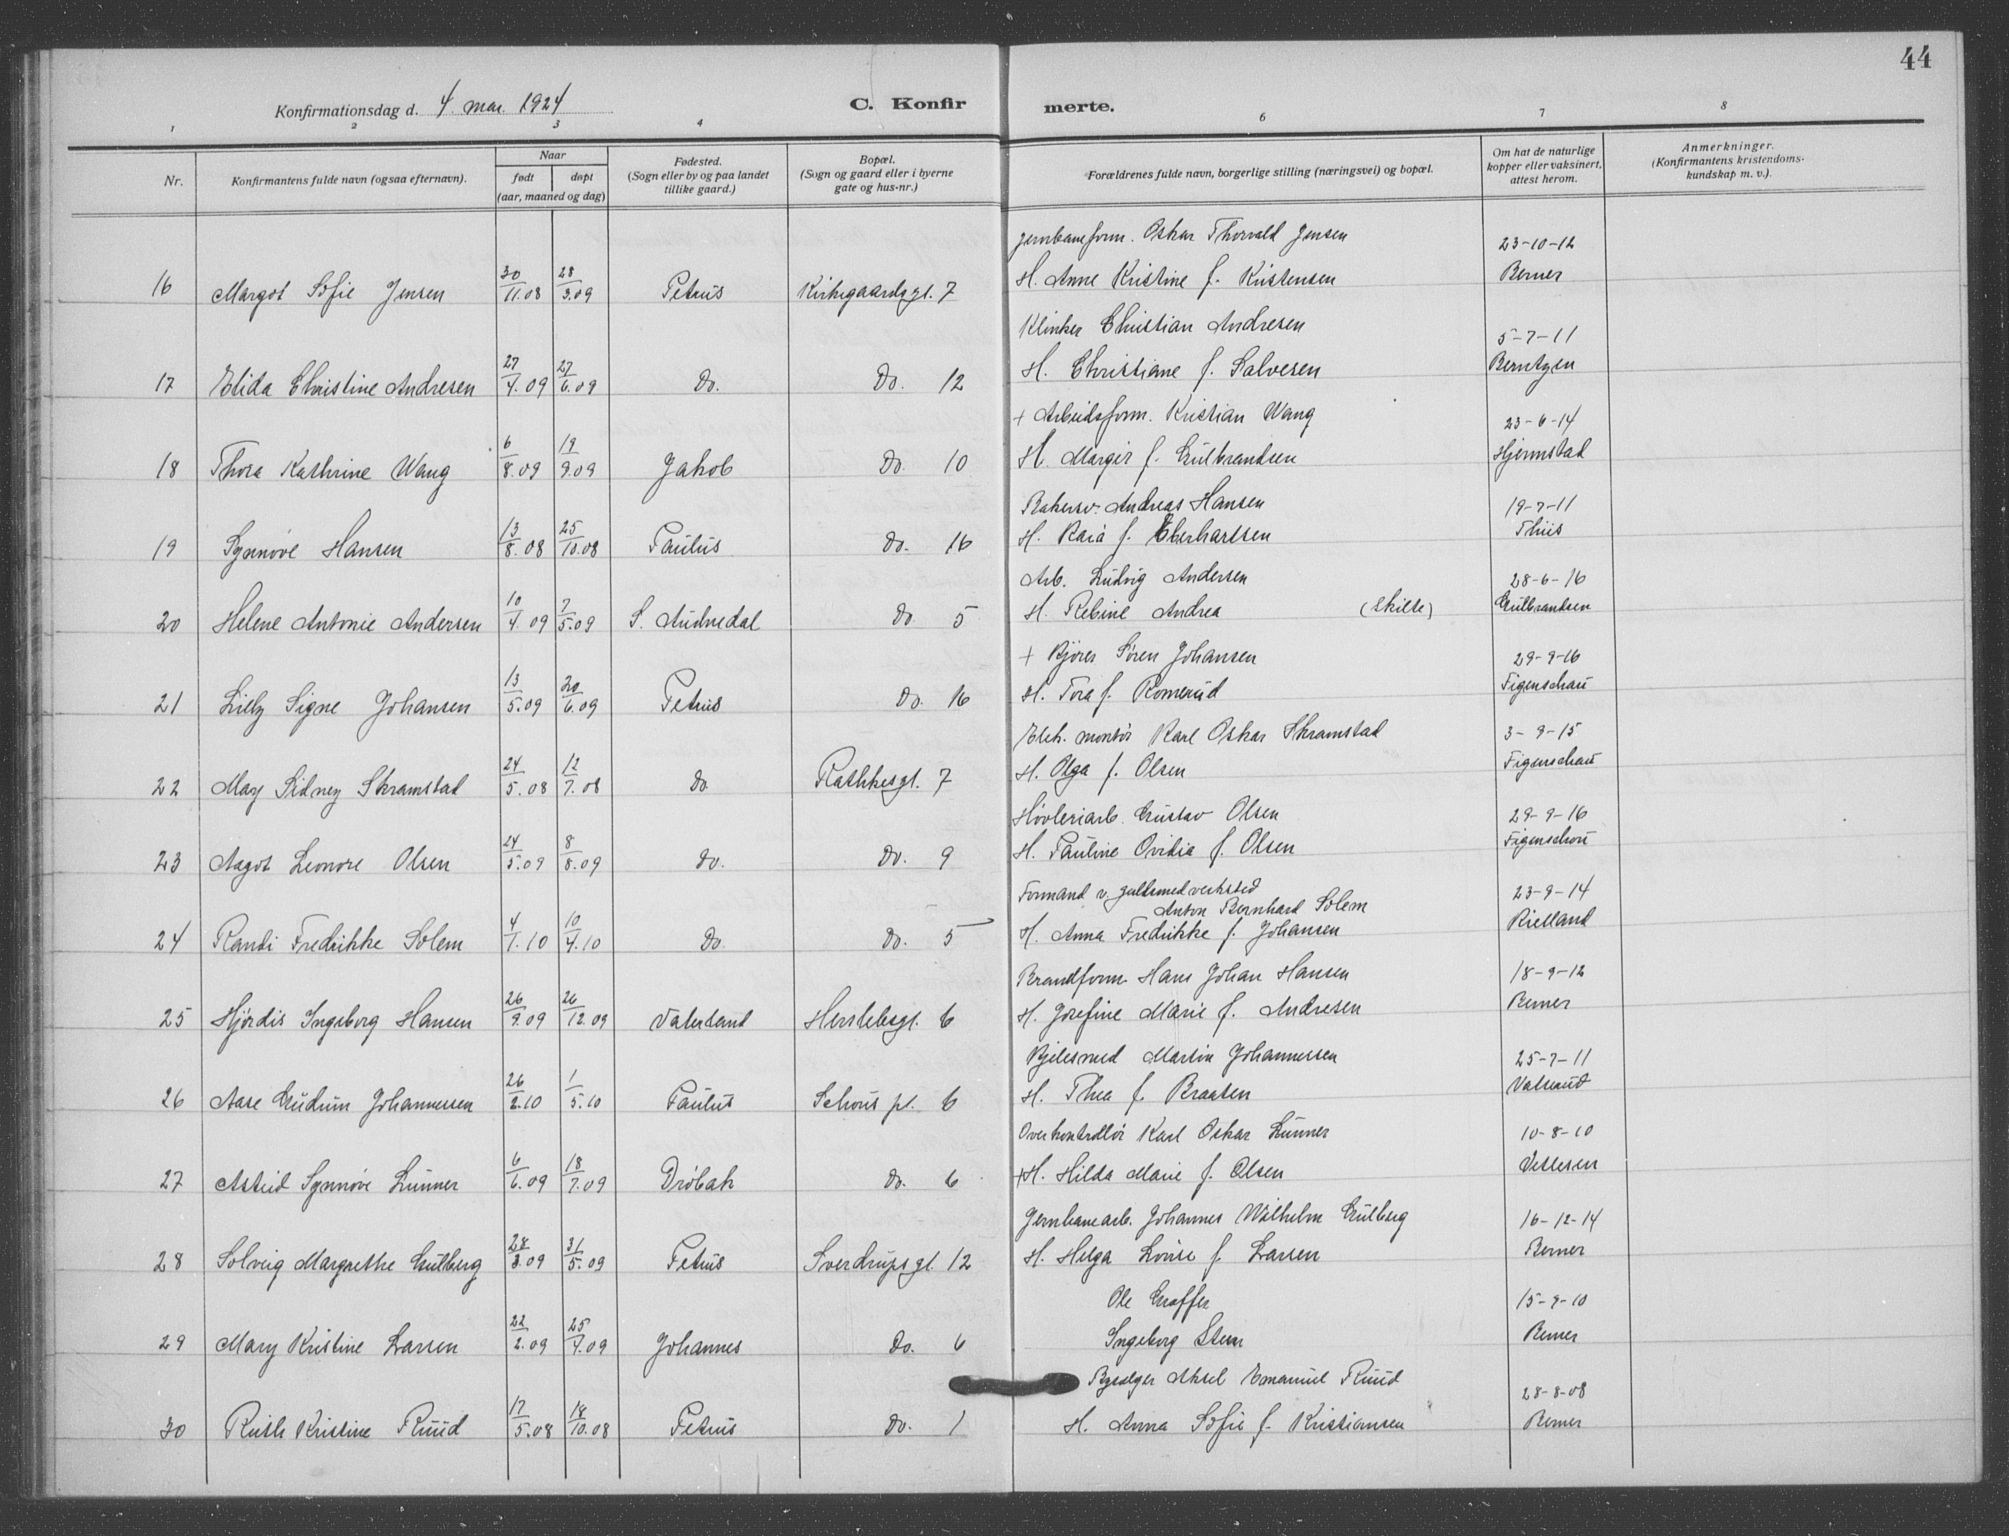 44
Konfirmationsdag d. 4. mai. 1924
C. Konfirmerte.
1 2 3 4 6 7 8
Nr.
Konfirmantens fulde navn (ogsaa efternavn).
Naar
født
døpt
(aar, maaned og dag)
Fødested.
(Sogn eller by og paa landet
tillike gaard.)
Bopæl.
(Sogn og gaard eller i byerne
gate og hus-nr.)
Forældrenes fulde navn, borgerlige stilling (næringsvei) og bopæl.
Om hat de naturlige
kopper eller vaksinert,
attest herom.
Anmerkninger.
(Konfirmantens kristendoms-
kundskap m. v.).
jernbaneform. Oskar Thorvald Jensen 23-10-12
16 Margot Sofie Jensen 30/11.08 28/3.09 Petrus Kirkegaardsgt. 7 H. Anne Kristine f. Kristensen Berner
Klinker Christian Andresen 5-7-11
17 Elida Christine Andresen 27/4.09 27/6.09 Do. Do. 12 H. Christiane f. Salvesen Berntzen
+ Arbeidsform. Kristian Wang 23-6-14
18 Thora Kathrine Wang 6/8.09 19/9.09 Jakob Do. 10 H. Margit f. Gulbrandsen Hjermstad
Bakersv. Andreas Hansen 19-7-11
19 Synnøve Hansen 13/8.08 25/10.08 Paulus Do. 16 H. Kaia f. Eberhartsen Thiis
Arb. Ludvig Andersen 28-6-16
20 Helene Antonie Andersen 10/4.09 7/5.09 S. Audnedal Do 5 H. Rebine Andrea (skilte) Gulbrandsen
+ Kjører Søren Johansen 29-9-16
21 Lilly Signe Johansen 13/5.09 20/6.09 Petrus Do. 16 H. Tora f. Romerud Figenschau
Elek. montør Karl Oskar Skramstad 3-9-15
22 May Sidney Skramstad 24/5.08 12/7.08 Do Rathkesgt. 7 H. Olga f. Olsen Figenschau
Høvleriarb. Gustav Olsen 29-9-16
23 Aagot Leonore Olsen 24/5.09 8/8.09 Do. Do. 9 H. Pauline Ovidia f. Olsen Figenschou
Formand v. guldsmedverksted 23-9-14
Anton Bernhard Solem
24 Randi Fredrikke Solem 4/1.10 10/4.10 Do. Do. 5 H. Anna Fredrikke f. Johansen Kielland
Brandform. Hans Johan Hansen 18-9-12
25 Hjørdis Ingeborg Hansen 26/9.09 26/12.09 Vaterland Herslebsgt. 6 H. Josefine Marie f. Andresen Berner
Kjelesmed Martin Johannessen 25-7-11
26 Aase Gudrun Johannessen 26/2.10 1/5.10 Paulus Schous pl. 6 H. Thea f. Braaten
Overkontrollør Karl Oskar Lunner 10-8-10
27 Astrid Synnøve Lunner 6/6.09 18/7.09 Drøbak Do. 6 + H. Hilda Marie f. Olsen Vettesen
Jernbanearb. Johannes Wilhelm Gulberg 16-12-14
28 Solveig Margrethe Gulberg 28/3.09 31/5.09 Petrus Sverdrupsgt. 12 H. Helga Lovise f. Larsen Berner
Ole Graffer 15-9-10
29 Mary Kristine Larsen 22/2.09 25/4.09 Johannes Do. 6 Ingeborg Steen Berner
Bysælger Aksel Emanuel Ruud 28-8-08
30 Ruth Kristine Ruud 17/5.08 18/10.08 Petrus Do. 1 H. Anna Sofie f. Kristiansen Berner